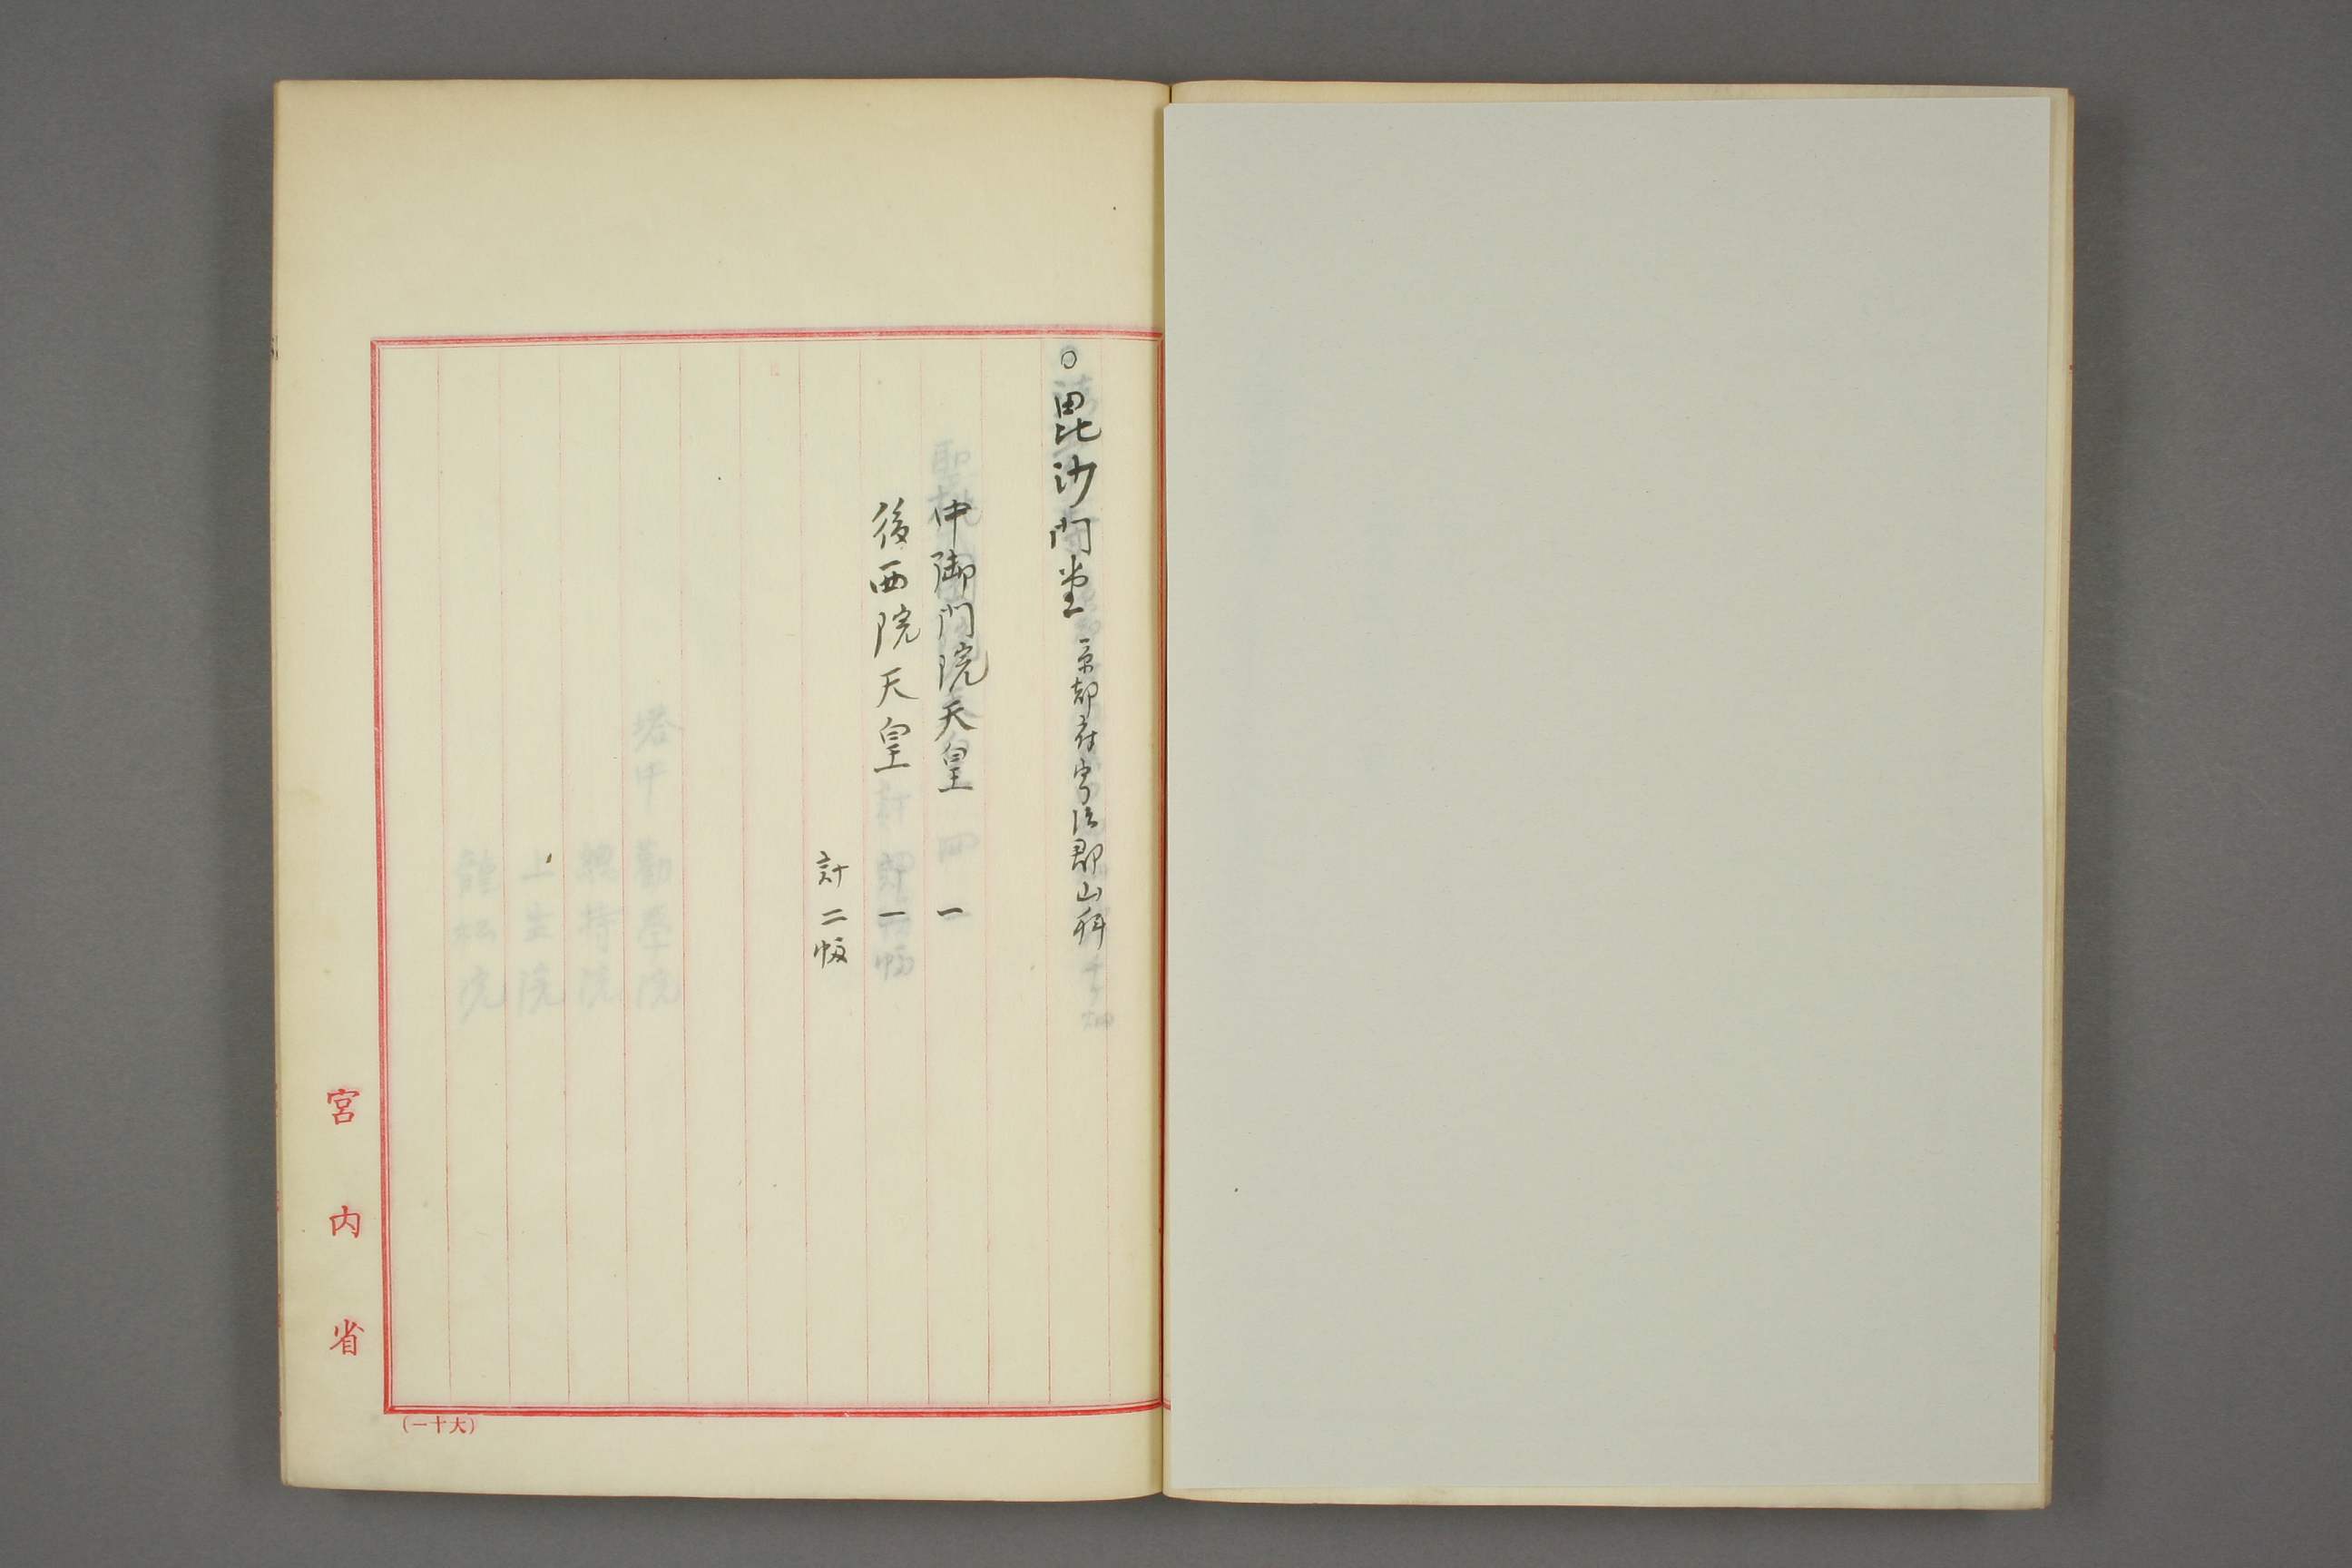 ○毘沙門堂 京都府宇治郡山科
中御門院天皇 一
後西院天皇 一
計二幅
宮内省
(大十一)